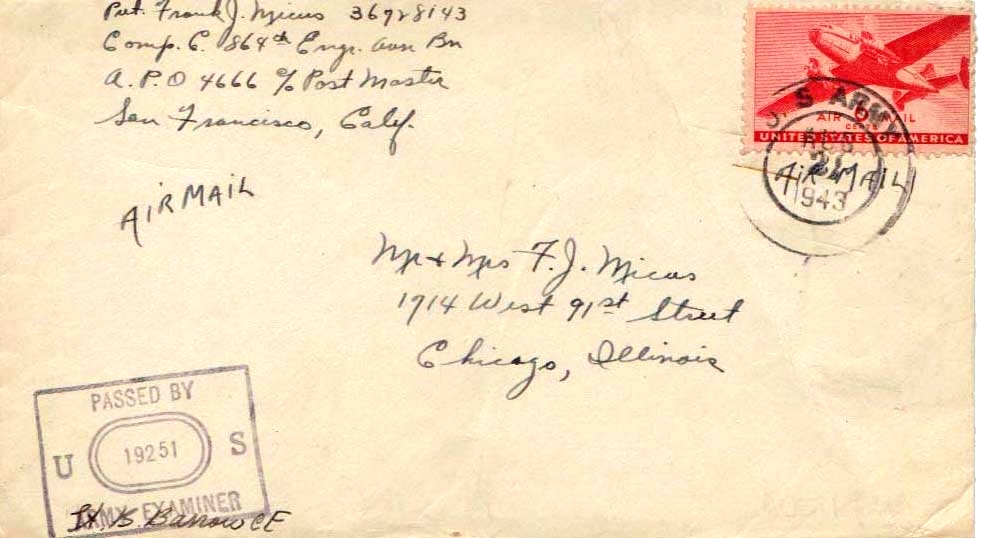 Pvt. Frank J. Micus 36728143
Comp. C. 864th Engr. Avn Bn
A.P.O 4666 % Post Master
San Francisco, Calif.
AIR MAIL
6
CENTS
AIR MAIL
UNITED STATES OF AMERICA
U. S. ARMY
AUG
21
1943
AiR MAIL
Mr + Mrs F. J. Micus
1914 West 91st Street
Chicago, Illinois
PASSED BY
U 19251 S
ARMY EXAMINER
Lt. Barrow CE